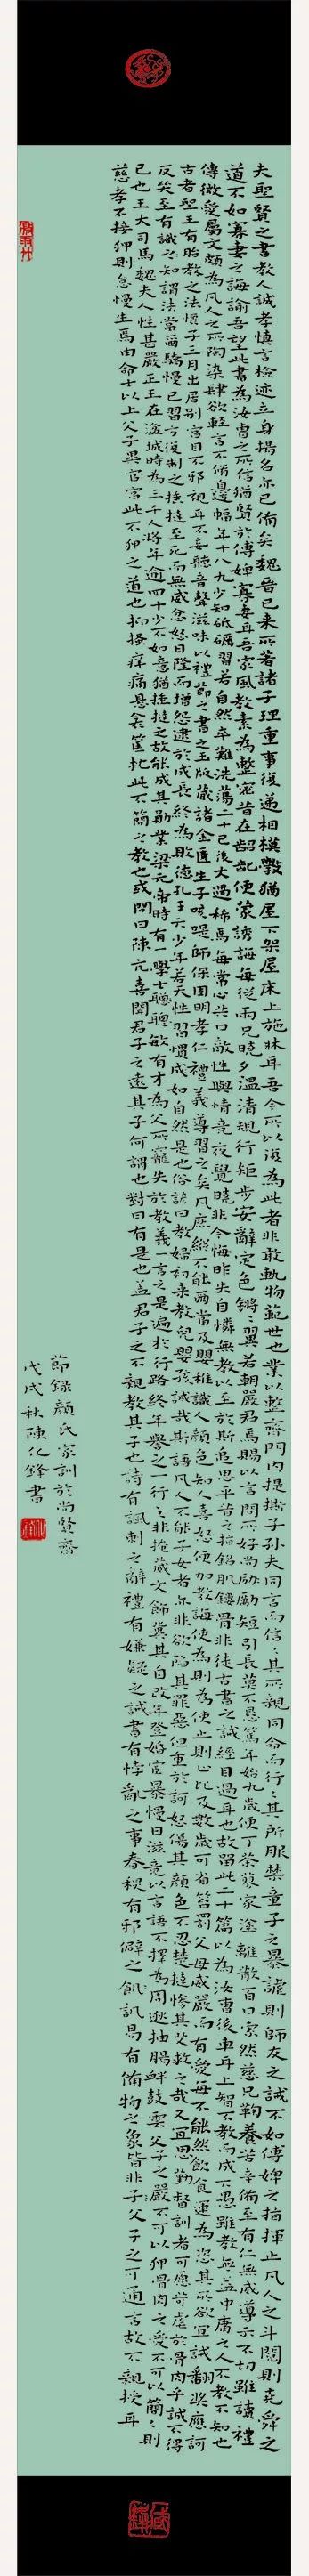 夫聖賢之書教人誠孝慎言檢迹立身揚名亦已備矣魏晉已來所著諸子理重事複遞相模斆猶屋下架屋床上施牀耳吾今所以復為此者非敢軌物範世也業以整齊門內提撕子孫夫同言而信〻其所親同命而行〻其所服禁童子之暴謔則師友之誡不如傅婢之指揮止凡人之斗鬩則堯舜之
道不如寡妻之誨諭吾望此書為汝曹之所信猶賢於傅婢寡妻耳吾家風教素為整密昔在齠齔便蒙誘誨每從兩兄曉夕溫清規行矩步安辭定色鏘〻翼〻若朝嚴君焉賜以言問所好尚勵短引長莫不懇篤年始九歲便丁荼蓼家塗離散百口索然慈兄鞠養苦辛備至有仁無威導示不切雖讀禮
傳微愛屬文頗為凡人之所陶染肆欲輕言不備邊幅年十八九少知砥礪習若自然卒難洗蕩二十已後大過稀焉每常心共口敵性與情競夜覺曉非今悔昨失自憐無教以至於斯追思平昔之指銘肌鏤骨非徒古書之誡經目過耳也故留此二十篇以為汝曹後車耳上智不教而成下愚雖教無益中庸之人不教不知也
古者聖王有胎教之法懷子三月出居別宮目不邪視耳不妄聽音聲滋味以禮節之書之玉版藏諸金匱生子咳㖷師保固明孝仁禮義導習之矣凡庶縱不能爾當及嬰稚識人顏色知人喜怒便加教誨使為則為使止則止比及數歲可省笞罰父母威嚴而有愛每不能然飲食運為恣其所欲宜誡翻獎應訶
反笑至有識之知謂法當爾驕慢已習方復制之捶撻至死而無威忿怒日隆而增怨逮於成長終為敗德孔子云少年若天性習慣成如自然是也俗諺曰教婦初來教兒嬰孩誠哉斯語凡人不能子女者亦非欲陷其罪惡但重於訶怒傷其顏色不忍楚撻慘其艾救之哉又宜思勤督訓者可願苛虐於骨肉乎誠不得
已也王大司馬魏夫人性甚嚴正王在湓城時為三千人將年逾四十少不如意猶捶撻之故能成其勛業梁元帝時有一學士聰敏有才為父所寵失於教義一言之是遍於行路終年譽之一行之非掩藏文飾冀其自改年登婚宦暴慢日滋竟以言語不擇為周逖抽腸衅鼓雲父子之嚴不可以狎骨肉之愛不可以簡〻則
慈孝不接狎則怠慢生焉由命士以上父子異宮此不狎之道也抑搔癢痛懸衾篋枕此不簡之教也或問曰陳亢喜聞君子之遠其子何謂也對曰有是也蓋君子之不親教其子也詩有諷刺之辭禮有嫌疑之誡書有悖亂之事春秋有邪僻之飢譏易有備物之象皆非子父子之可通言故不親授耳
節錄顏氏家訓於尚賢齋
戊戌秋陳化鋒書